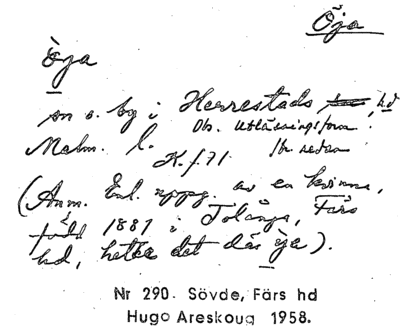 Öja
òja
sn o. by i Herrestads hd
Ob. utlåsningsform!
Malm. l.
K. f. 71.
(Anm. Enl. uppg. av en kvinna,
född 1881 i Tolånga, Färs
hd, hette det där òja).
Nr 290. Sövde, Färs hd
Hugo Areskoug 1958.